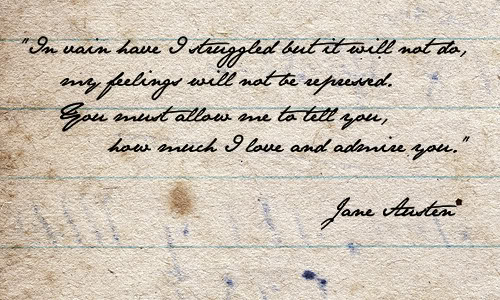 "In vain have I struggled but it will not do,
my feelings will not be repressed.
You must allow me to tell you,
how much I love and admire you."
Jane Austen